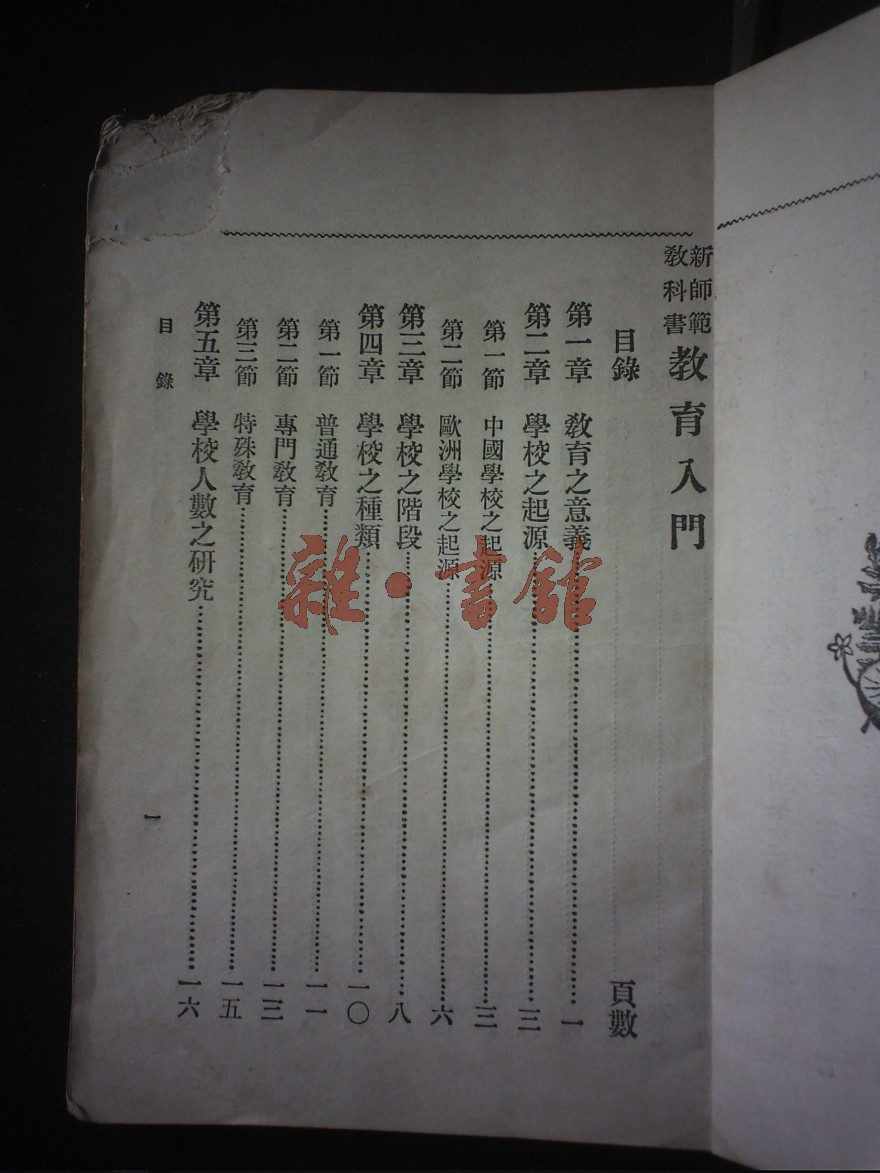 新師範
教科書
教育入門
目錄 頁數
第一章 教育之意義 一
第二章 學校之起源 三
第一節 中國學校之起源 三
第二節 歐洲學校之起源 六
第三章 學校之階段 八
第四章 學校之種類 一〇
第一節 普通教育 一一
第二節 專門教育 一三
第三節 特殊教育 一五
第五章 學校人數之研究 一六
目錄 一
雜·書館